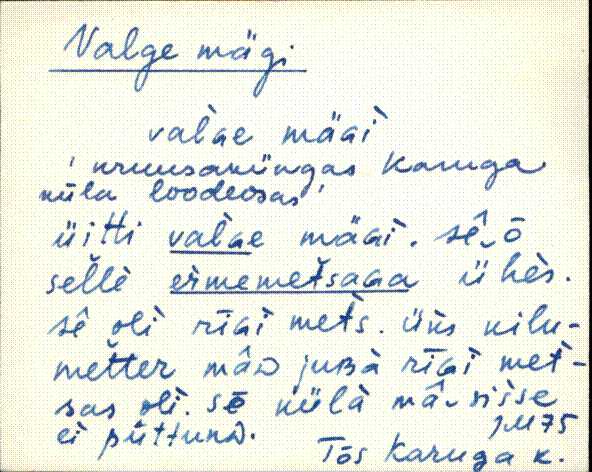 Valge mägi
val̀ɢe mäɢi̇̀
'kruusaküngas Karuga
küla loodeosas'
üiťti val̀ɢe mäɢi̇̀. sê‿õ
sel̆lè ei̇̀rmemeťsaɢa ühès.
sê oĺi rīɢi meťs. üks kilu-
meťter mâᴅ juʙà rīɢi meť-
sas oĺi. sē külà mâ‿sisse
ei püttunᴅ. JM 75
Tõs Karuga k.